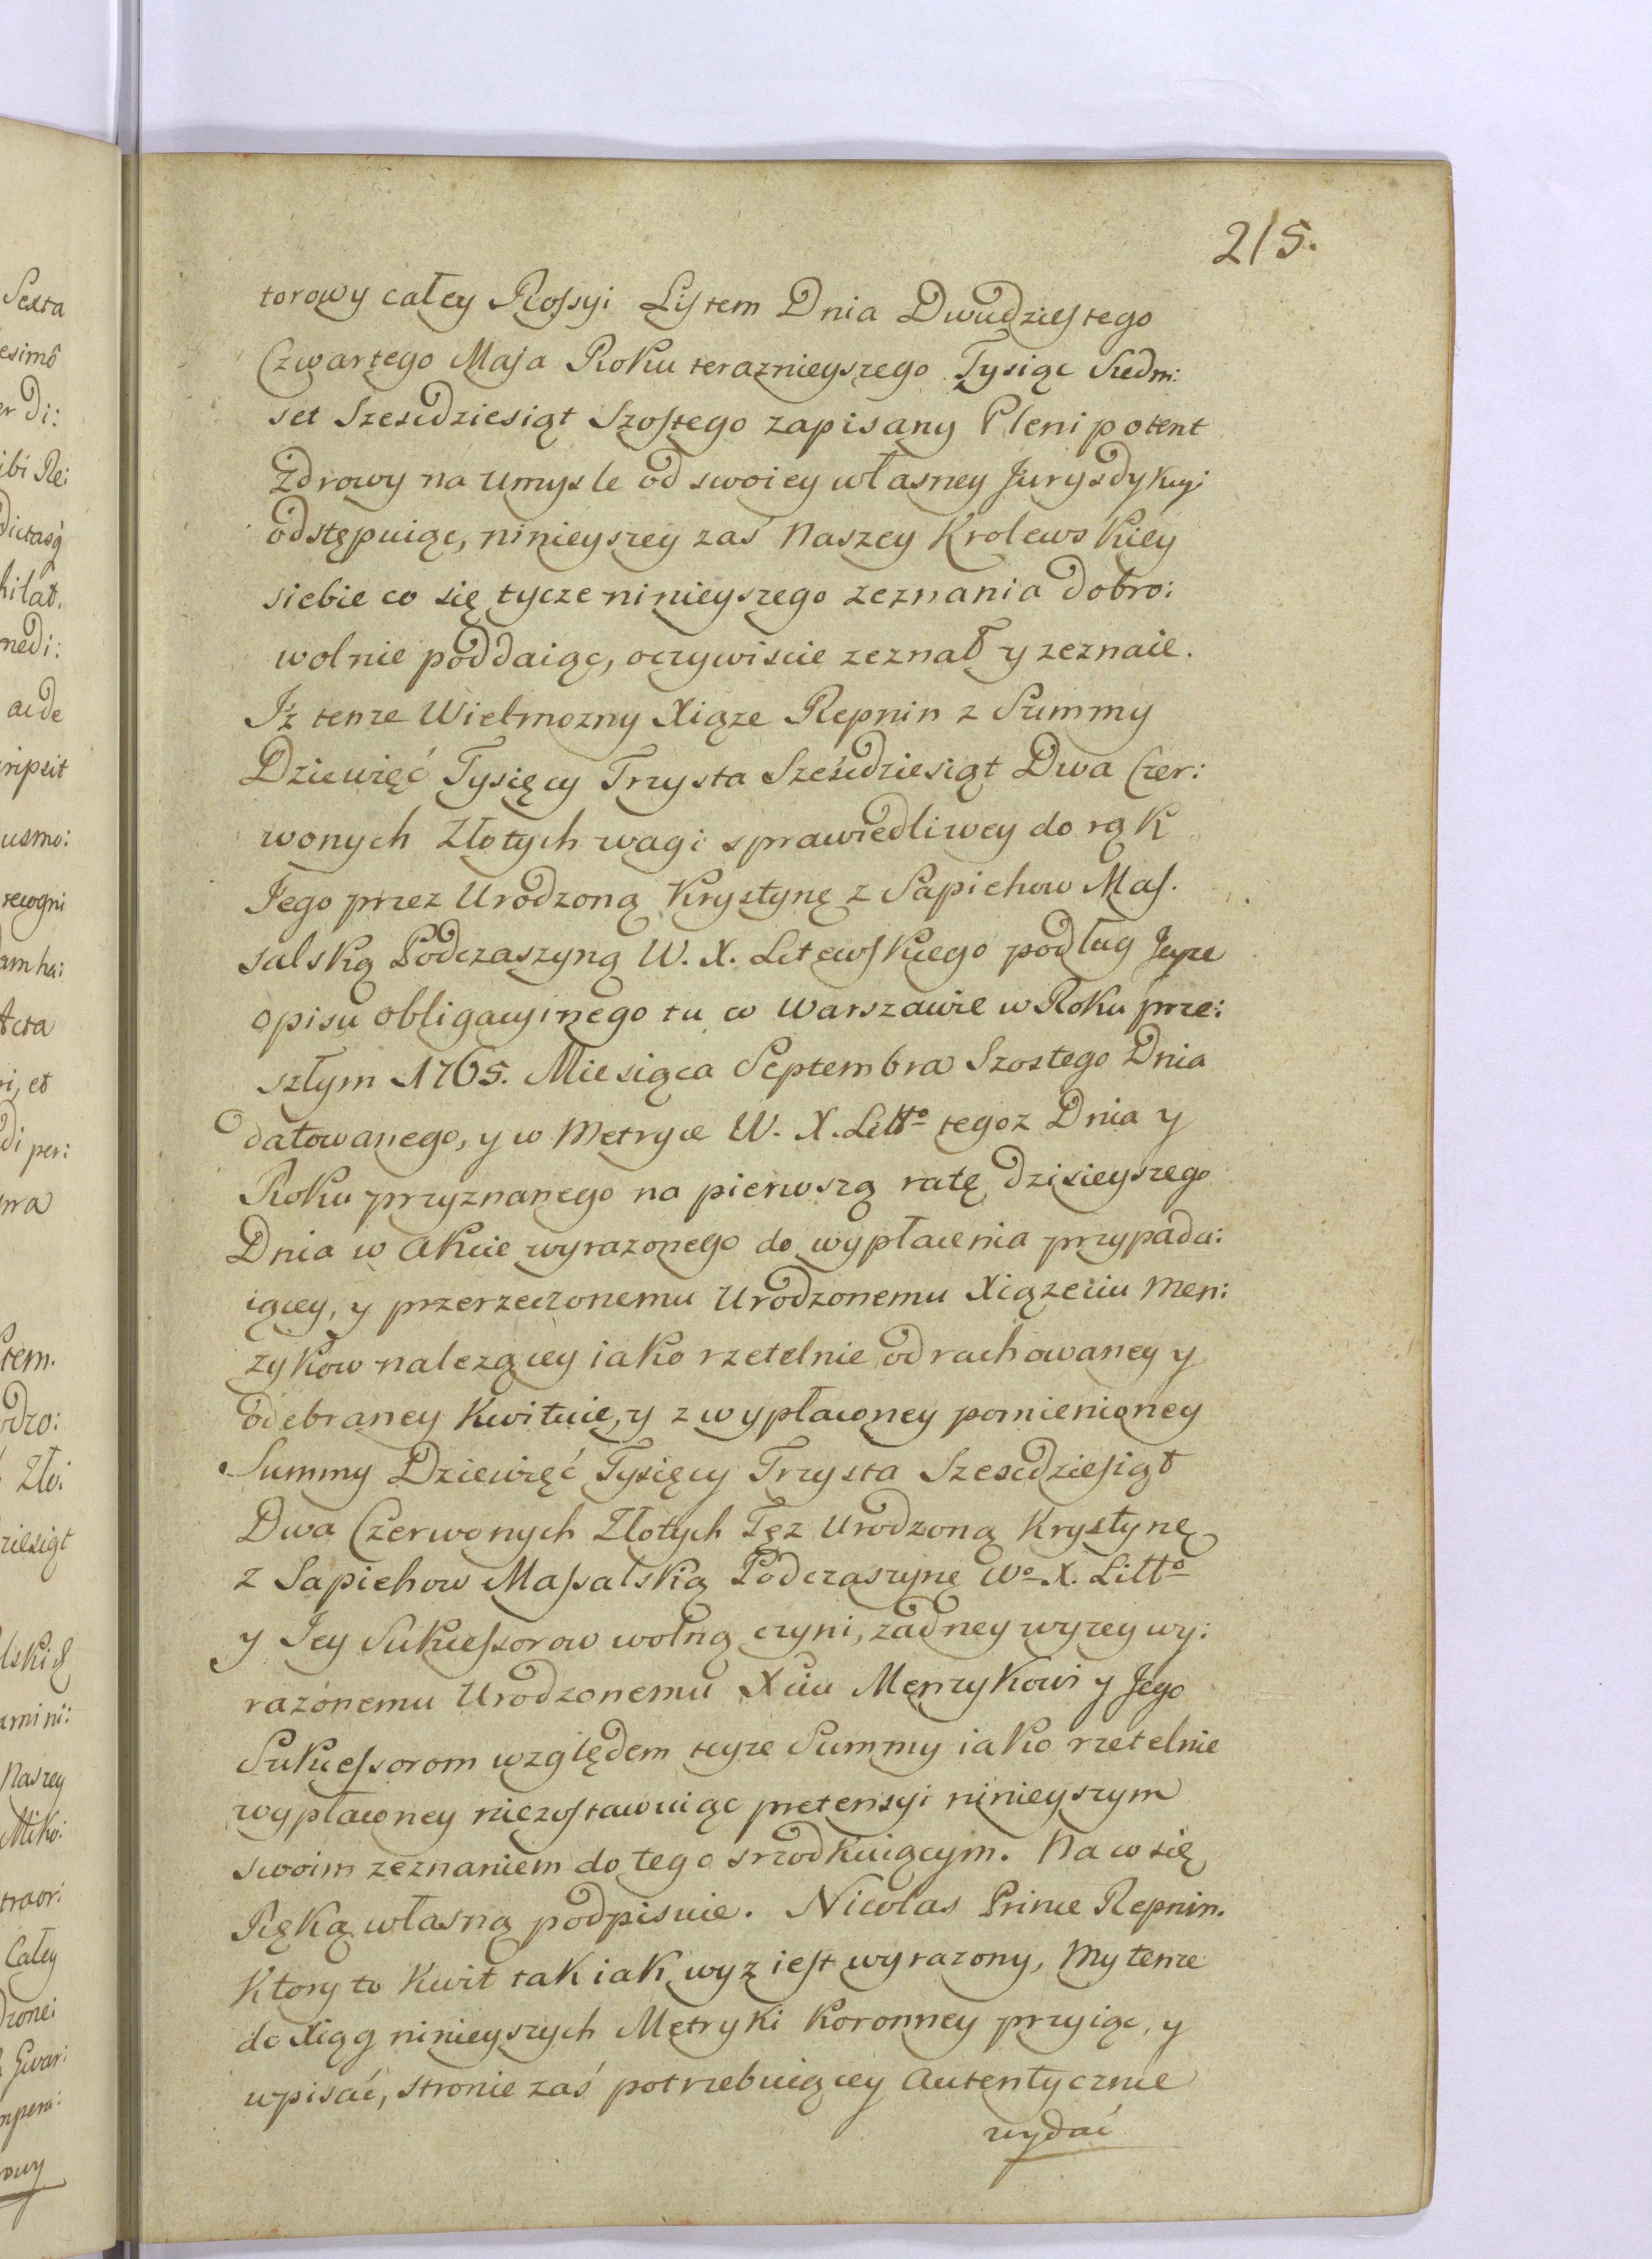 215.
torowy całey Rossyi Listem Dnia Dwudziestego
Czwartego Maja Roku teraznieyszego Tysiąc Siedm:
set Szescdziesiąt Szostego zapisany Plenipotent
Zdrowy na Umysle od swoiey własney Jurysdykcyi
odstępuiąc, ninieyszey zaś Naszey Krolewskiey
siebie co się tycze ninieyszego zeznania dobro:
wolnie poddaiąc, oczywiscie zeznał y zeznaie.
Iż tenze Wielmozny Xiąze Repnin z Summy
Dziewięć Tysięcy Trzysta Sześćdziesiąt Dwa Czer:
wonych Złotych wagi sprawiedliwey do rąk
Jego przez Urodzoną Krystynę z Sapiehow Mas.
salską Podczaszyną W. X. Litewskiego podług Jeyze
opisu obligacyinego tu w Warszawie w Roku prze:
szłym 1765. Miesiąca Septembra Szostego Dnia
datowanego, y w Metryce W. X. Litto tegoz Dnia y
Roku przyznanego na pierwszą ratę dzisieyszego
Dnia w Akcie wyrazonego do wypłacenia przypada:
iącey, y przerzeczonemu Urodzonemu Xiązęciu Men:
zykow nalezącey iako rzetelnie odrachowaney y
odebraney Kwituie, y z wypłaconey pomienioney
Summy Dziewięć Tysięcy Trzysta Szescdziesiąt
Dwa Czerwonych Złotych Tęz Urodzoną Krystynę
z Sapiehow Massalską Podczaszynę Wo X. Litto
y Jey Sukcessorow wolną czyni, zadney wyzey wy:
razónemu Urodzonemu Xciu Menzykowi y Jego
Sukcessorom względem teyze Summy iako rzetelnie
wypłaconey niezostawuiąc pretensyi ninieyszym
swoim zeznaniem do tego srzodkuiącym. Na co się
Ręką własną podpisuie. Nicolas Prince Repnin.
Ktory to Kwit tak iak wyz iest wyrazony, My tenze
do Xiąg ninieyszych Metryki Koronney przyiąc, y
wpisać, stronie zaś potrzebuiącey Autentycznie
wydać